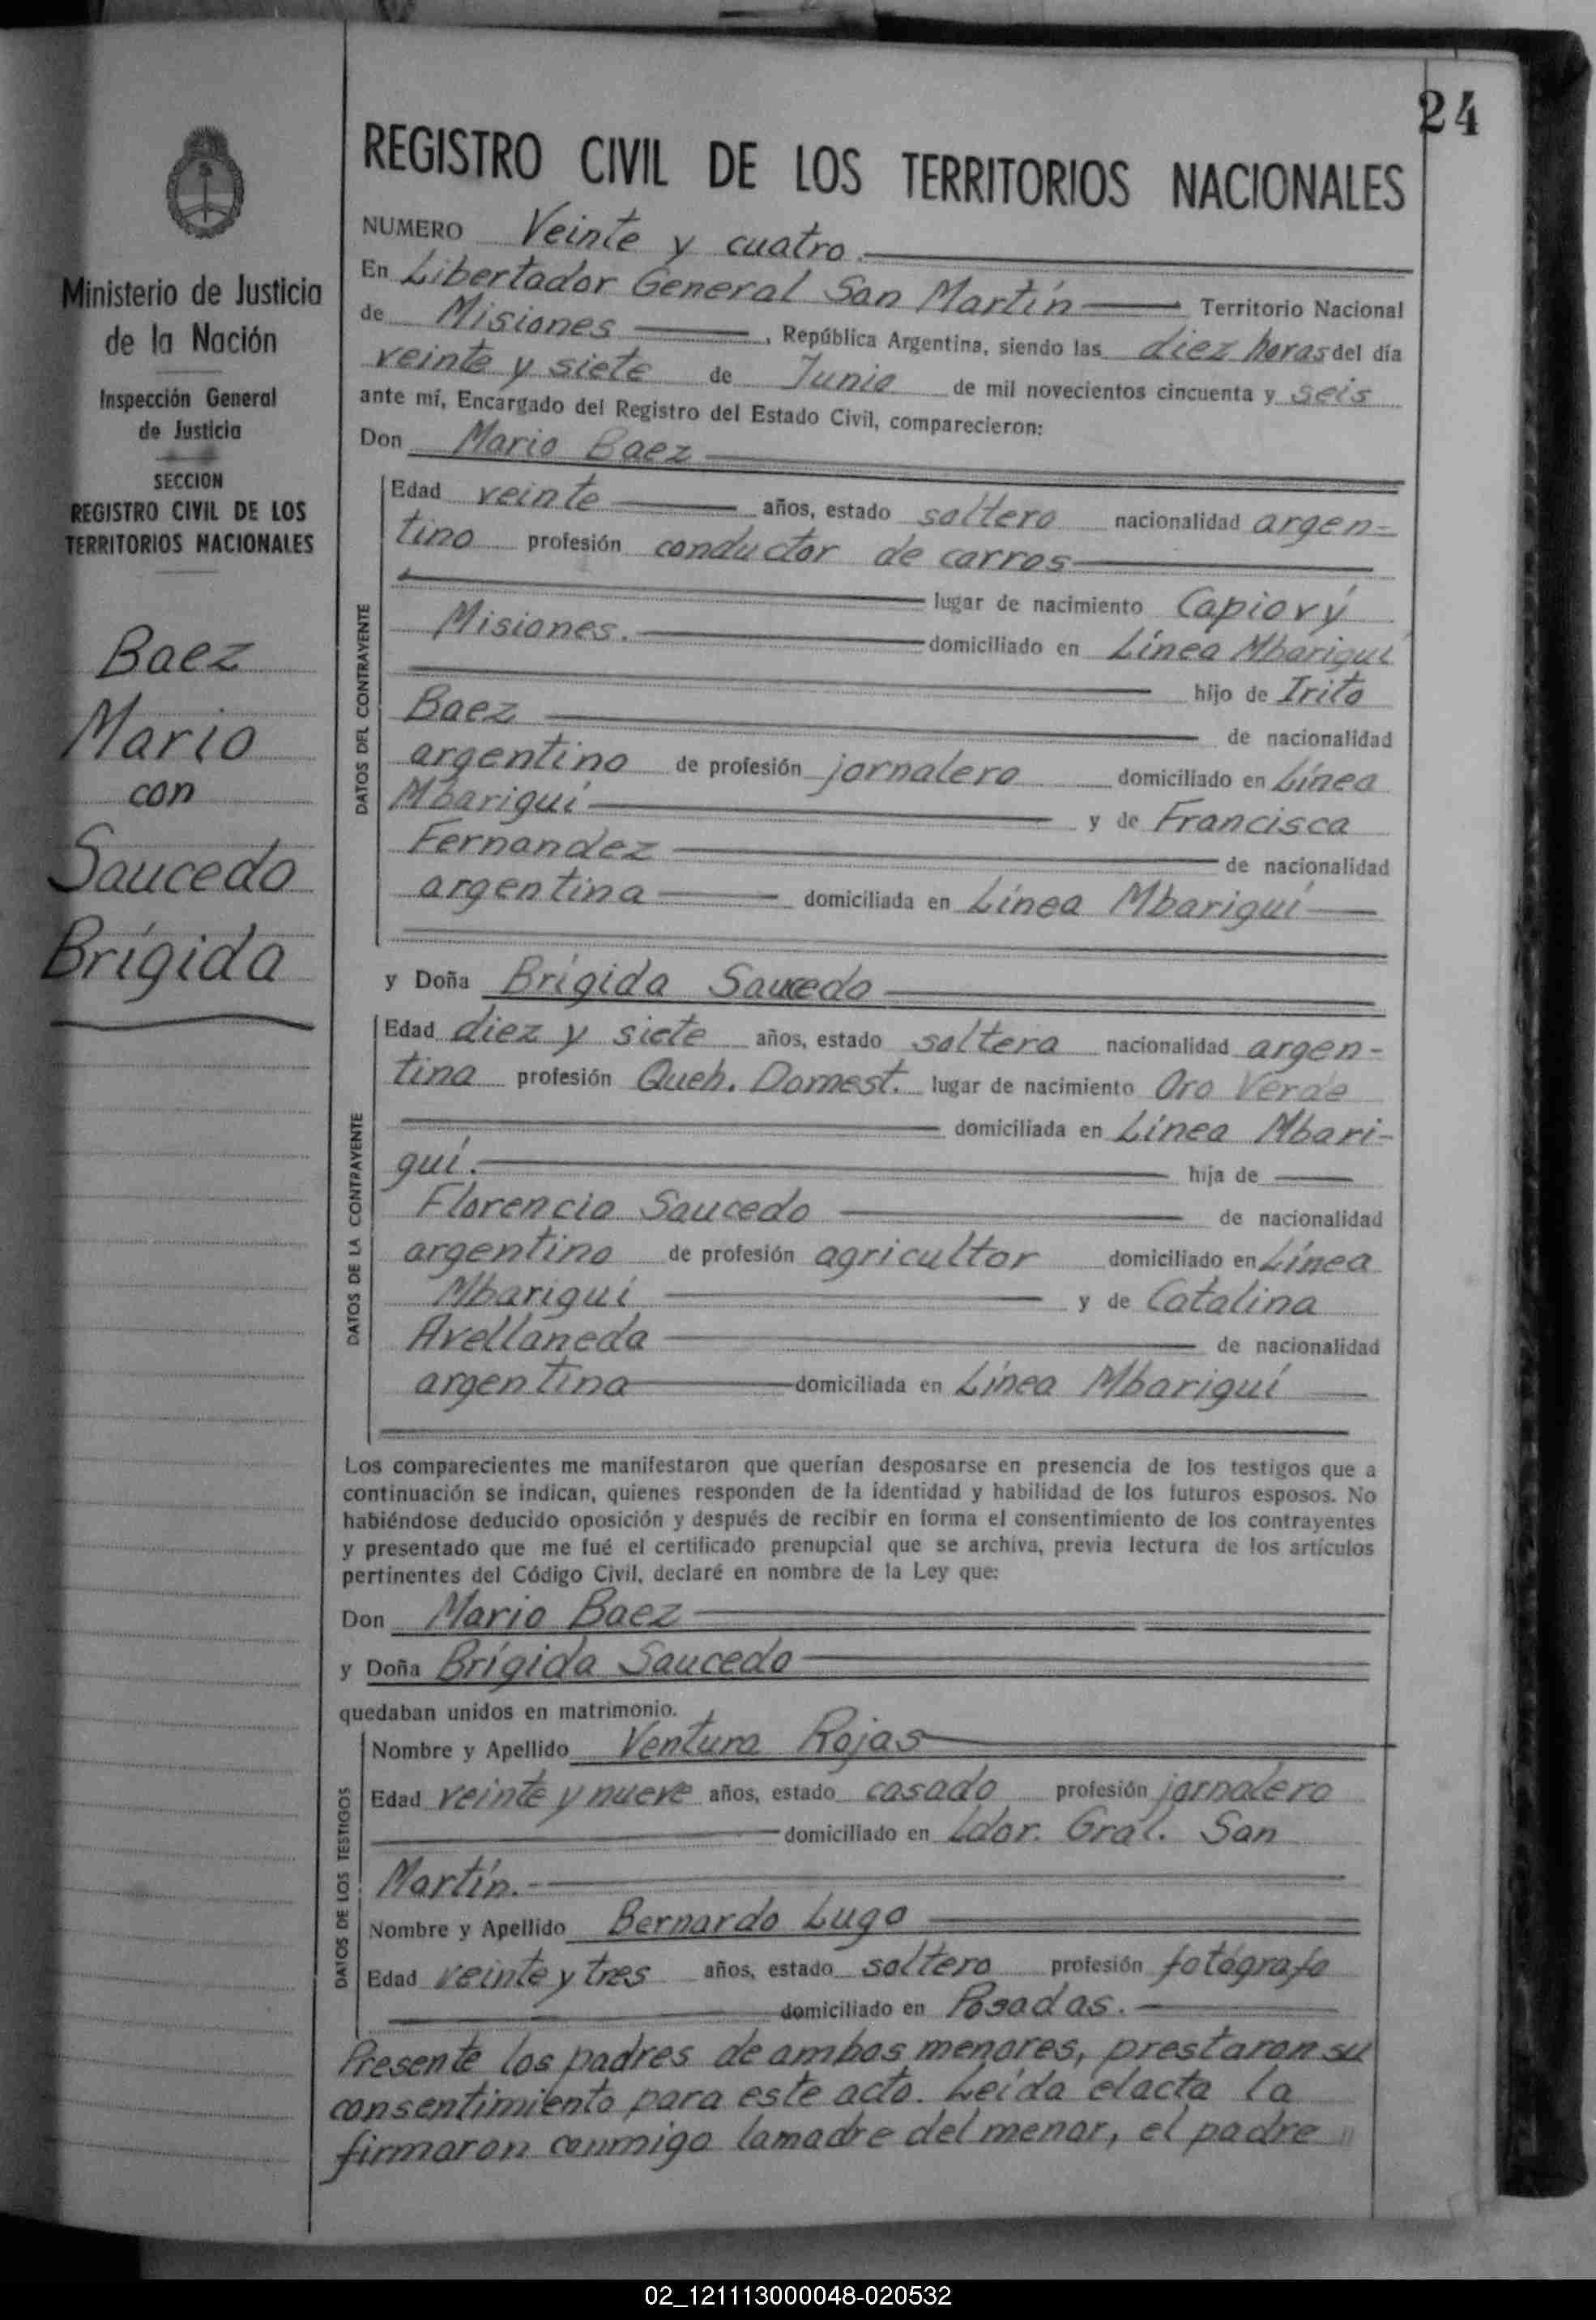 24
Ministerio de Justicia
de la Nación
Inspección General
de Justicia
SECCION
REGISTRO CIVIL DE LOS
TERRITORIOS NACIONALES
Baez
Mario
con
Saucedo
Brígida
REGISTRO CIVIL DE LOS TERRITORIOS NACIONALES
NUMERO Veinte y cuatro.
En Libertador General San Martín Territorio Nacional
de Misiones, República Argentina, siendo las diez horas del día
veinte y siete de Junio de mil novecientos cincuenta y seis
ante mí, Encargado del Registro del Estado Civil, comparecieron:
Don Mario Baez
DATOS DEL CONTRAYENTE
Edad veinte años, estado soltero nacionalidad argen=
tino profesión conductor de carros
lugar de nacimiento Capioví
Misiones. domiciliado en Línea Mbariguí
hijo de Irito
Baez de nacionalidad
argentino de profesión jornalero domiciliado en Línea
Mbariguí y de Francisca
Fernandez de nacionalidad
argentina domiciliada en Línea Mbariguí
y Doña Brígida Saucedo
DATOS DE LA CONTRAYENTE
Edad diez y siete años, estado soltera nacionalidad argen-
tina profesión Queh. Domest. lugar de nacimiento Oro Verde
domiciliada en Línea Mbari-
guí. hija de
Florencio Saucedo de nacionalidad
argentino de profesión agricultor domiciliado en Línea
Mbariguí y de Catalina
Avellaneda de nacionalidad
argentina domiciliada en Línea Mbariguí
Los comparecientes me manifestaron que querían desposarse en presencia de los testigos que a
continuación se indican, quienes responden de la identidad y habilidad de los futuros esposos. No
habiéndose deducido oposición y después de recibir en forma el consentimiento de los contrayentes
y presentado que me fué el certificado prenupcial que se archiva, previa lectura de los artículos
pertinentes del Código Civil, declaré en nombre de la Ley que:
Don Mario Baez
y Doña Brígida Saucedo
quedaban unidos en matrimonio.
DATOS DE LOS TESTIGOS
Nombre y Apellido Ventura Rojas
Edad veinte y nueve años, estado casado profesión jornalero
domiciliado en Ldor. Gral. San
Martín.
Nombre y Apellido Bernardo Lugo
Edad veinte y tres años, estado soltero profesión fotógrafo
domiciliado en Posadas.
Presente los padres de ambos menores, prestaron su
consentimiento para este acto. Leída el acta la
firmaron conmigo la madre del menor, el padre
02_121113000048-020532